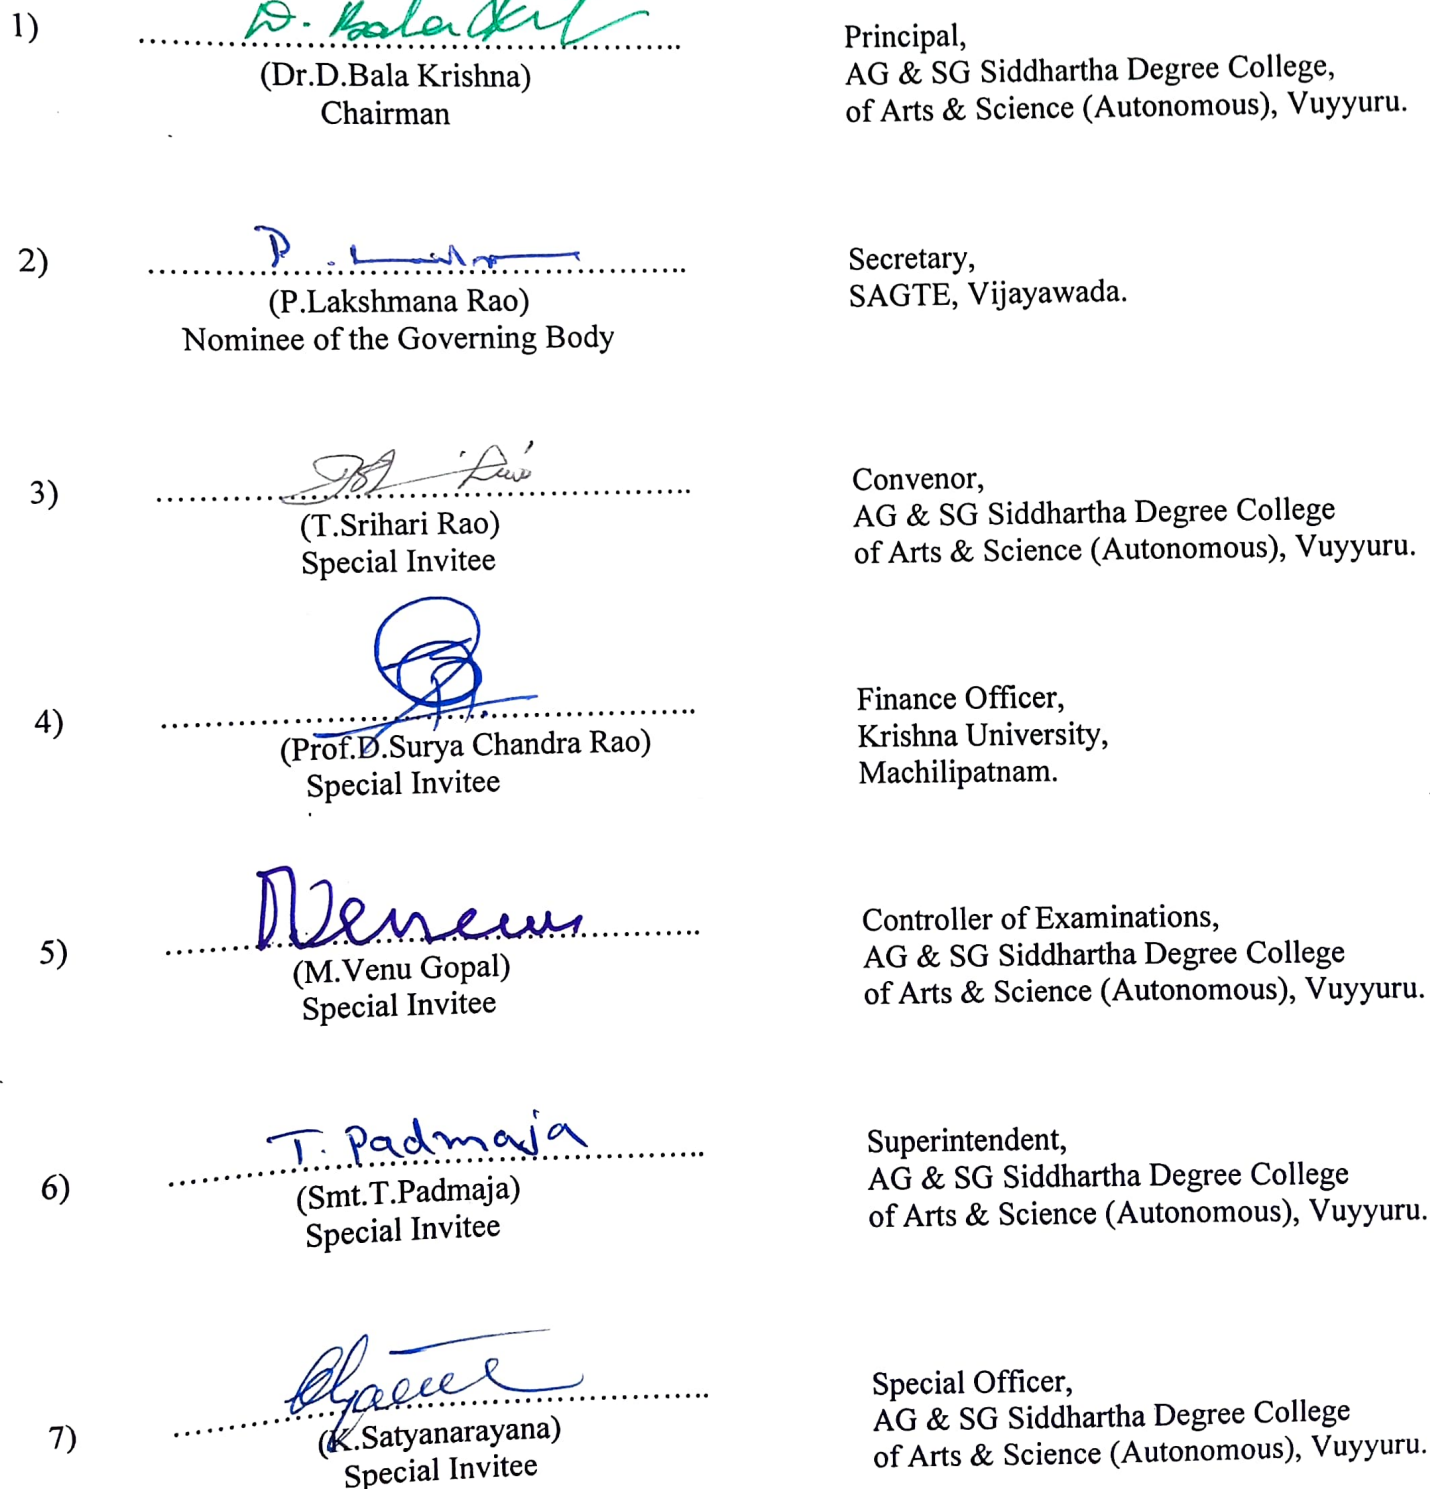 1)
D. Bala
(Dr.D.Bala Krishna)
Chairman
Principal,
AG & SG Siddhartha Degree College,
of Arts & Science (Autonomous), Vuyyuru.
2)
P.
(P.Lakshmana Rao)
Nominee of the Governing Body
Secretary,
SAGTE, Vijayawada.
3)
(T.Srihari Rao)
Special Invitee
Convenor,
AG & SG Siddhartha Degree College
of Arts & Science (Autonomous), Vuyyuru.
4)
(Prof.D.Surya Chandra Rao)
Special Invitee
Finance Officer,
Krishna University,
Machilipatnam.
5)
(M.Venu Gopal)
Special Invitee
Controller of Examinations,
AG & SG Siddhartha Degree College
of Arts & Science (Autonomous), Vuyyuru.
6)
T. Padmaja
(Smt.T.Padmaja)
Special Invitee
Superintendent,
AG & SG Siddhartha Degree College
of Arts & Science (Autonomous), Vuyyuru.
7)
(K.Satyanarayana)
Special Invitee
Special Officer,
AG & SG Siddhartha Degree College
of Arts & Science (Autonomous), Vuyyuru.